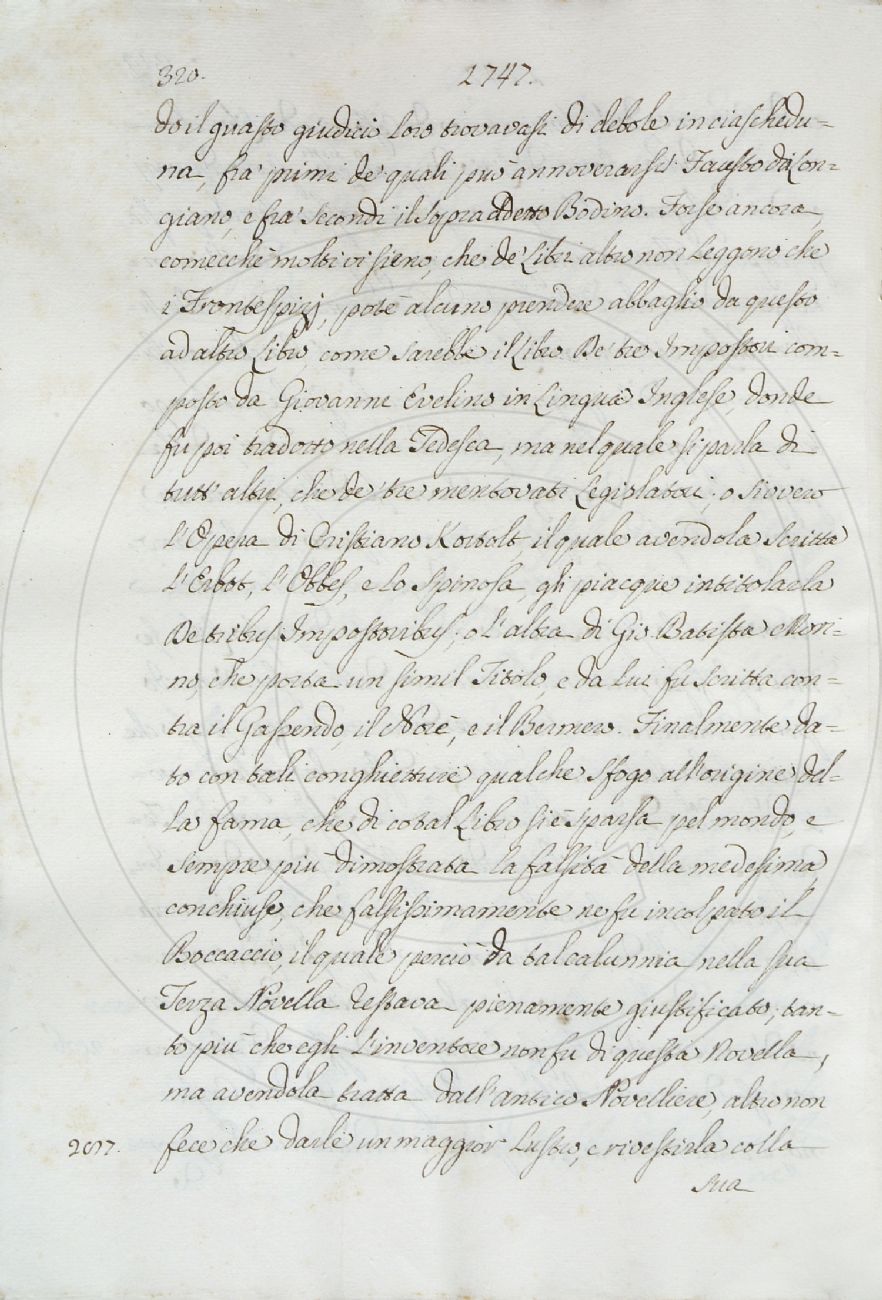 320. 1747.
do il guasto giudicio loro trovavasi di debole in ciaschedu=
na, fra' primi de' quali può annoverarsi Fausto da Lon=
giano, e fra' secondi il sopraddetto Bodino. Forse ancora,
comecchè molti vi sieno, che de' Libri altro non leggono che
i Frontespizj, potè alcuno prendere abbaglio da questo
ad altro Libro, come sarebbe il Libro De' tre Impostori com=
posto da Giovanni Evelino in Lingua Inglese, donde
fu poi tradotto nella Tedesca, ma nel quale si parla di
tutt'altri, che de' tre mentovati Legislatori; o sivvero
l'Opera di Cristiano Kortolt, il quale avendola scritta
l'Erbot, l'Obbes, e lo Spinosa, gli piacque intitolarla
De tribus Impostoribus; o l'altra di Gio. Batista Mori=
no, che porta un simil Titolo, e da lui fu scritta con=
tra il Gassendo, il Norè, e il Bernier. Finalmente da=
to con tali conghietture qualche sfogo all'origine del=
la fama, che di cotal Libro si è sparsa pel mondo, e
sempre più dimostrata la falsità della medesima,
conchiuse, che falsissimamente ne fu incolpato il
Boccaccio, il quale perciò da tal calunnia nella sua
Terza Novella restava pienamente giustificato; tan=
to più che egli l'inventore non fu di questa Novella,
ma avendola tratta dall'antico Novelliere, altro non
fece che darle un maggior lustro, e rivestirla colla
2017.
sua